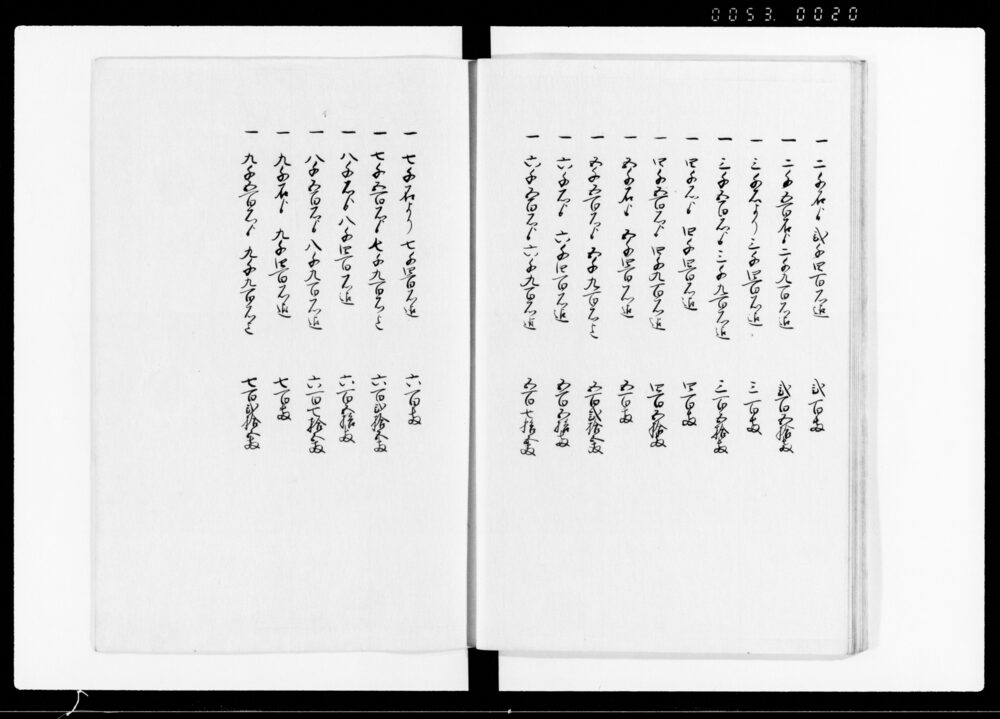 0053. 0020
一 二千石ゟ 弐千四百石迄 弐百表
一 二千五百石ゟ 二千九百石迄 弐百五拾表
一 三千石より 三千四百石迄 三百表
一 三千五百石ゟ 三千九百石迄 三百五拾表
一 四千石ゟ 四千四百石迄 四百表
一 四千五百石ゟ 四千九百石迄 四百五拾表
一 五千石ゟ 五千四百石迄 五百表
一 五千五百石ゟ 五千九百石迄 五百弐拾五表
一 六千石ゟ 六千四百石迄 五百五拾表
一 六千五百石ゟ 六千九百石迄 五百七拾五表
一 七千石より 七千四百石迄 六百表
一 七千五百石ゟ 七千九百石迄 六百弐拾五表
一 八千石ゟ 八千四百石迄 六百五拾表
一 八千五百石ゟ 八千九百石迄 六百七拾五表
一 九千石ゟ 九千四百石迄 七百表
一 九千五百石ゟ 九千九百石迄 七百弐拾五表